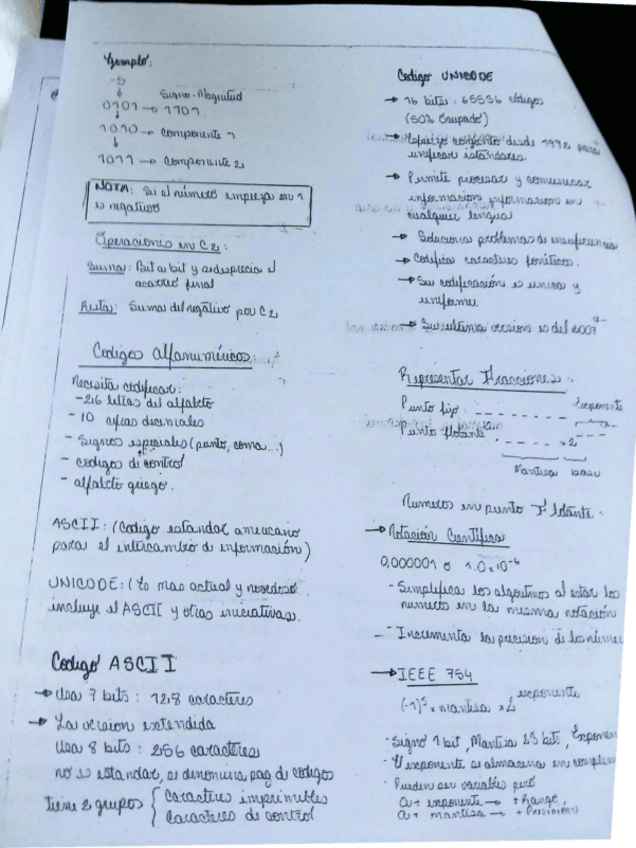 Ejemplo:
-5
Signo-Magnitud
0101 → 1101
1010 → Componente 1
1011 → Componente 2
NOTA: Si el número empieza en 1
es negativo
Operaciones en C2:
Suma: Bit a bit y se desprecia el
acarreo final
Resta: Suma del negativo por C2
Codigos alfanuméricos:
Necesita codificar:
- 26 letras del alfabeto
- 10 cifras decimales
- Signos especiales (punto, coma...)
- codigos de control
- alfabeto griego.
ASCII: (Codigo estandar americano
para el intercambio de información)
UNICODE: (Lo mas actual y novedoso
incluye el ASCII y otras iniciativas.
Codigo ASCII
→ Usa 7 bits: 128 caracteres
→ La version extendida
Usa 8 bits: 256 caracteres
no es estandar, se denomina pag de codigos
tiene 2 grupos { Caracteres imprimibles
Caracteres de control
Codigo UNICODE
→ 16 bits: 65536 codigos
(50% Ocupado)
→ Esfuerzo conjunto desde 1992 para
unificar estandares.
→ Permite procesar y comunicar
informacion informacion en
cualquier lengua
→ Soluciona problemas de insuficiencia
→ Codifica caracteres foneticos.
→ Su codificación es unica y
uniforme.
→ Su ultima version es del 2007
Representar Fracciones:
Punto fijo: - - - - - - - exponente
Punto flotante - - - - - - x 2
Mantisa base
Numeros en punto Flotante:
→ Notación Científica
0,000001 o 1.0 x 10⁻⁶
- Simplifica los algoritmos al estar los
numeros en la misma notación
- Incrementa la precision de los
→ IEEE 754
(-1)ˢ x mantisa x 2 exponente
- Signo 1 bit, Mantisa 23 bits,
- El exponente se almacena en
- Pueden ser variables pero
a + exponente → + Rango,
a + mantisa → + Precision